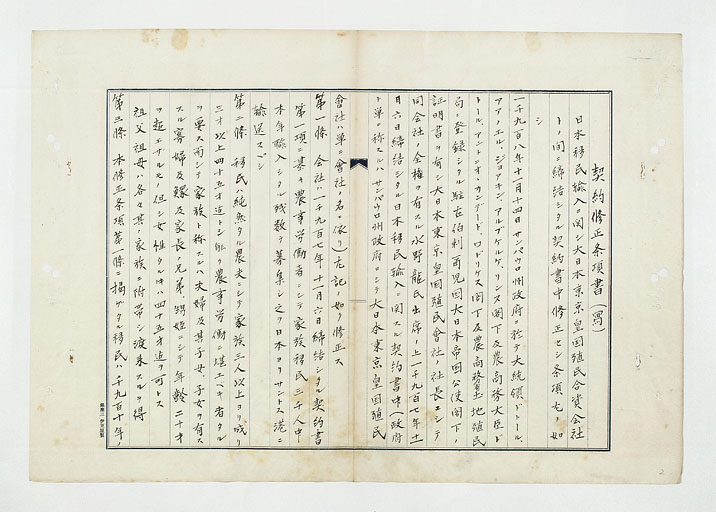 契約修正条項書(寫)
日本移民輸入ニ関シ大日本東京皇国殖民合資会社
トノ間ニ締結シタル契約書中修正セシ条項左ノ如
シ
一千九百八年十一月十四日サンパウロ州政府ニ於テ大統領ドクトール、
アアノエル、ジョアキン、アルブケルケ、リンス閣下及農務大臣ド
クトール、アントニオ、カンヂード、ロドリゲス閣下及農商務土地殖民
局ニ登録シタル駐在伯剌西児国大日本帝国公使閣下ノ
証明書ヲ有シ大日本東京皇国殖民會社ノ社長ニシテ
同会社ノ全権ヲ有スル水野龍氏出席ノ上一千九百七年十一
月六日締結シタル日本移民輸入ニ関スル契約書中(政府
ト単ニ称スルハサンパウロ州政府ニシテ大日本東京皇国殖民
會社ハ単ニ會社ノ名ニ依リ)左記ノ如ク修正ス
第一條 会社ハ一千九百七年十一月六日締結シタル契約書
第一項ニ基キ農事労働者ニシテ家族移民三千人中
本年輸入シタル残数ヲ募集シ之ヲ日本ヨリサントス港ニ
輸送スベシ
第二條 移民ハ純然タル農夫ニシテ家族三人以上ヨリ成リ
三才以上四十五才迄トシ能ク農事労働ニ堪エベキ者タル
ヲ要ス而シテ家族ト称スルハ夫婦及其子女ノ子女ヲ有ス
スル寡婦及鰥及家長ノ兄弟甥姪ニシテ年齢二十才
ヲ超エサルモノ但シ女性タル時ハ四十五才迄ヲ可トス
祖父祖母ハ各々其ノ家族ニ附帯シ渡来スルヲ得
第三條 本修正条項第一條ニ掲ゲタル移民ハ一千九百十年ノ